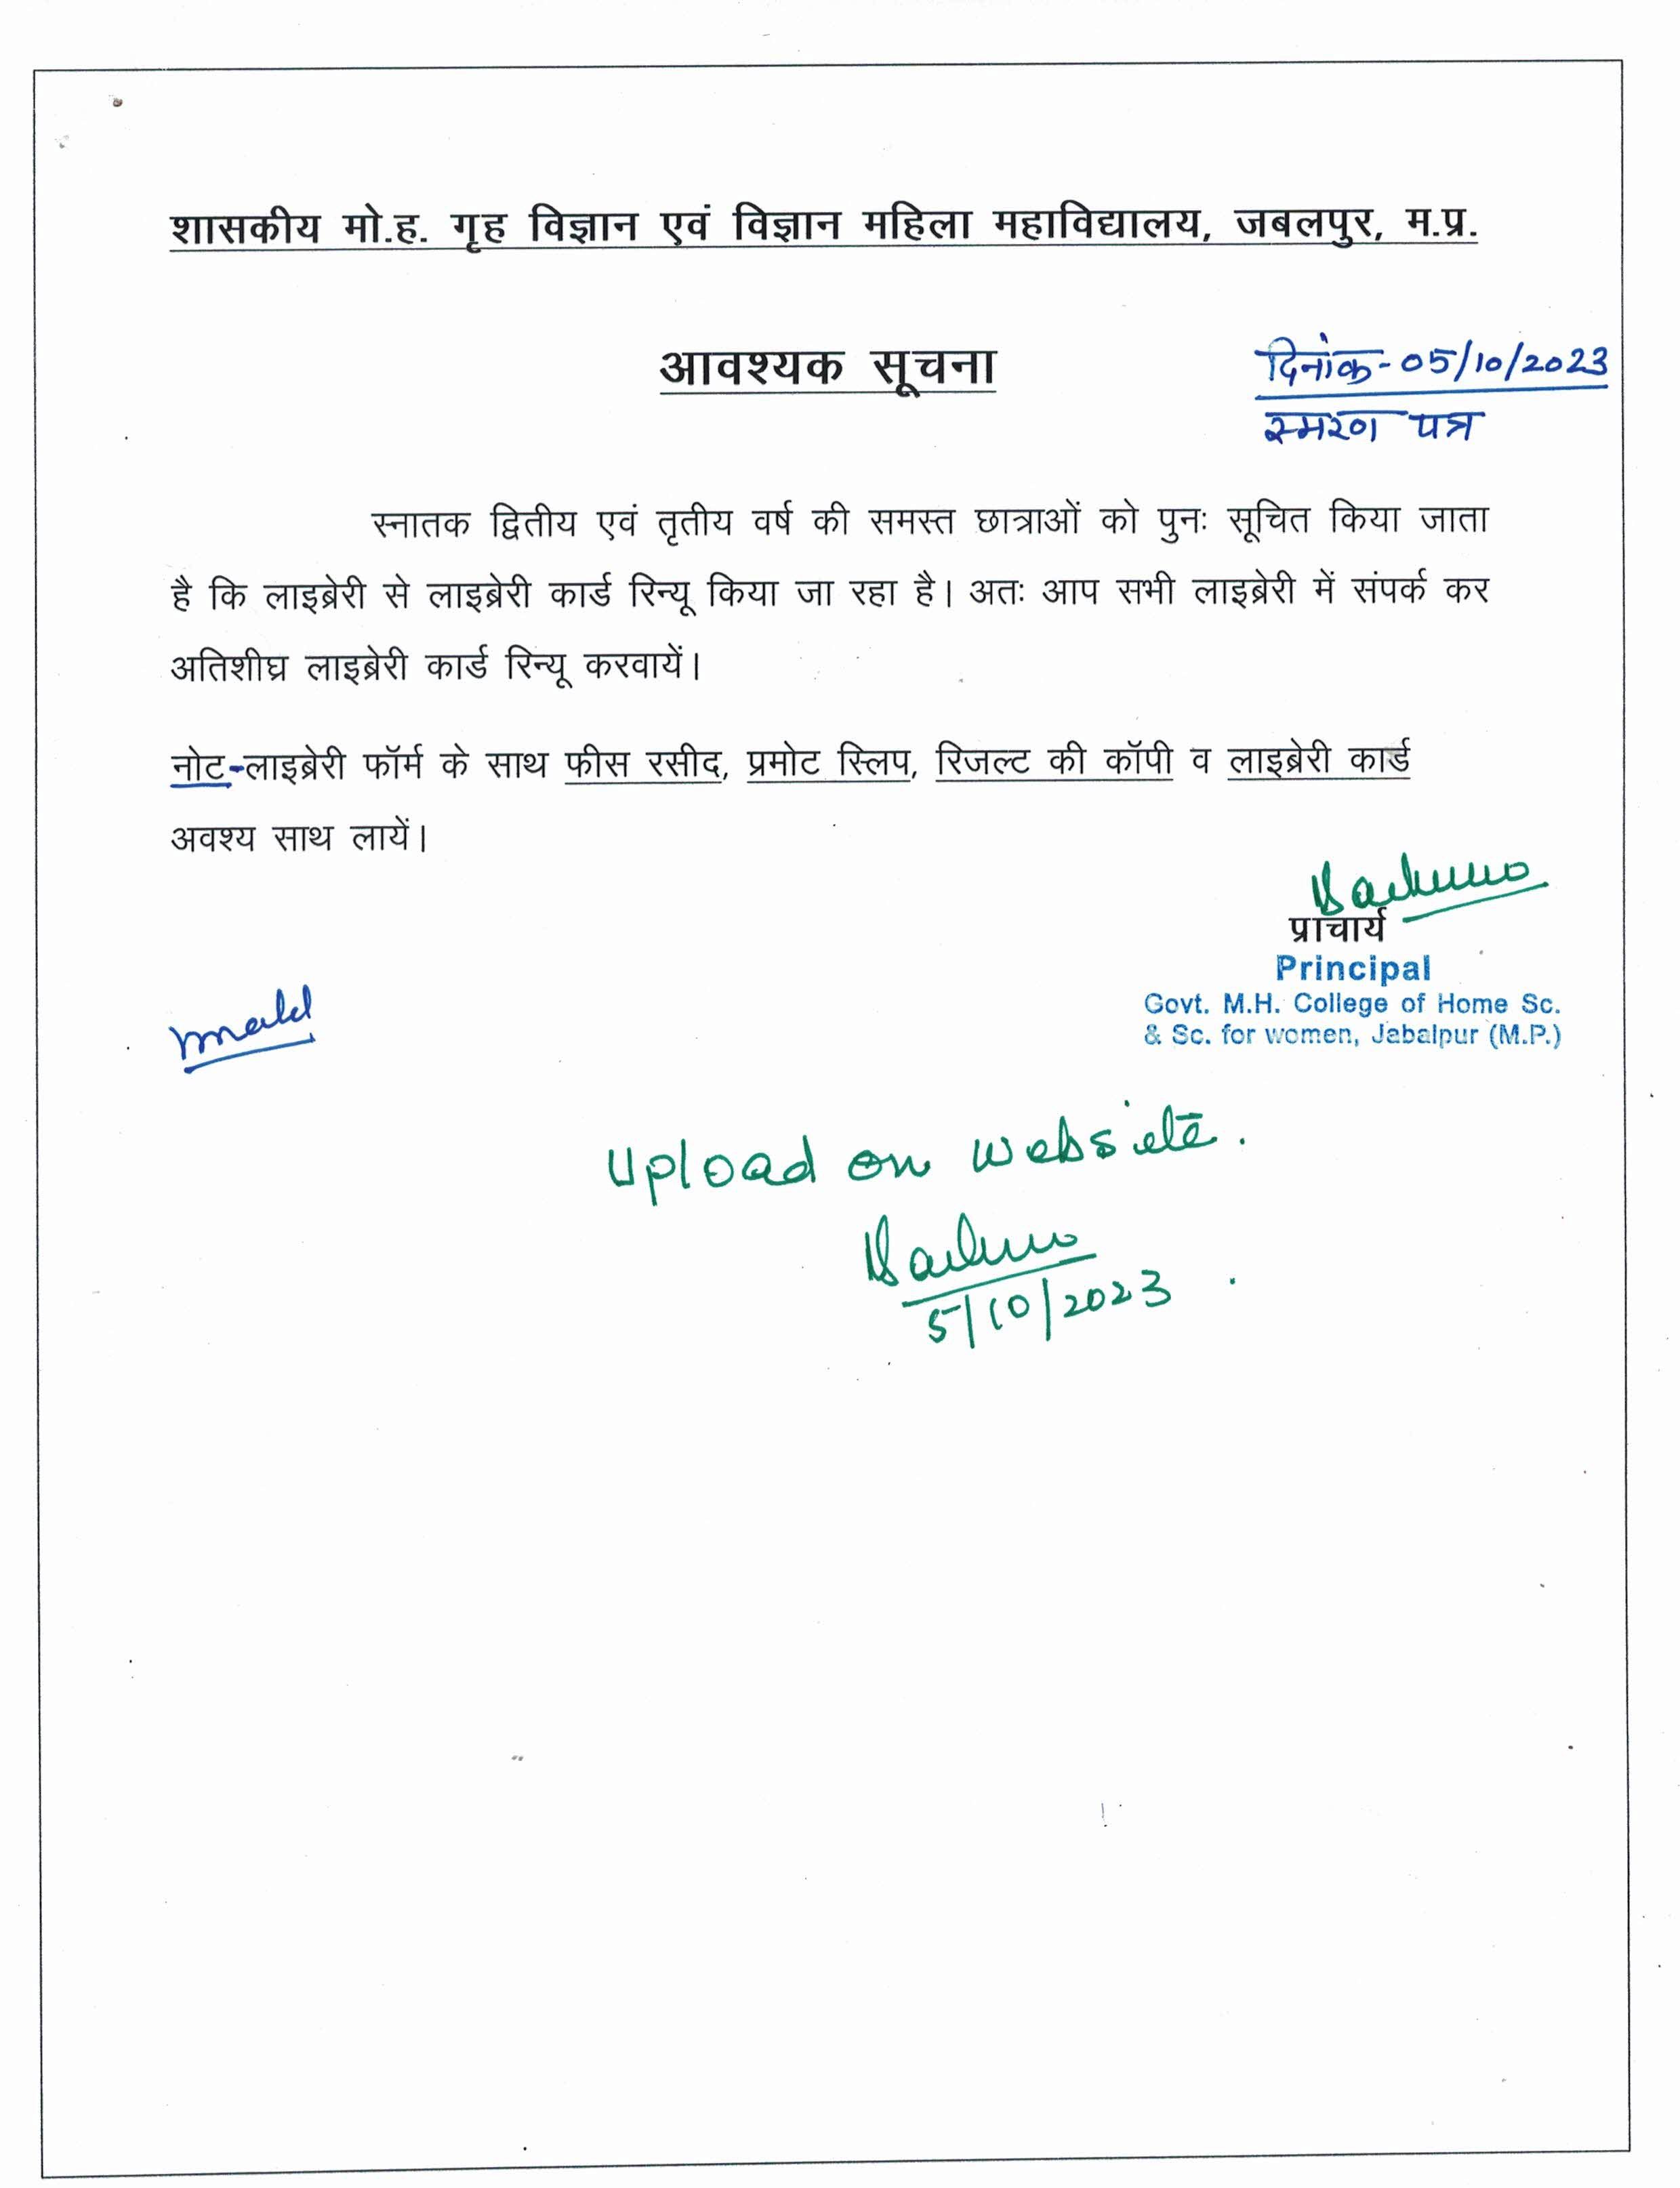 शासकीय मो.ह. गृह विज्ञान एवं विज्ञान महिला महाविद्यालय, जबलपुर, म.प्र.
आवश्यक सूचना
दिनांक-05/10/2023
स्मरण पत्र
स्नातक द्वितीय एवं तृतीय वर्ष की समस्त छात्राओं को पुनः सूचित किया जाता
है कि लाइब्रेरी से लाइब्रेरी कार्ड रिन्यू किया जा रहा है। अतः आप सभी लाइब्रेरी में संपर्क कर
अतिशीघ्र लाइब्रेरी कार्ड रिन्यू करवायें।
नोट-लाइब्रेरी फॉर्म के साथ फीस रसीद, प्रमोट स्लिप, रिजल्ट की कॉपी व लाइब्रेरी कार्ड
अवश्य साथ लायें।
प्राचार्य
Principal
Govt. M.H. College of Home Sc.
& Sc. for women, Jabalpur (M.P.)
Upload on website.
5/10/2023